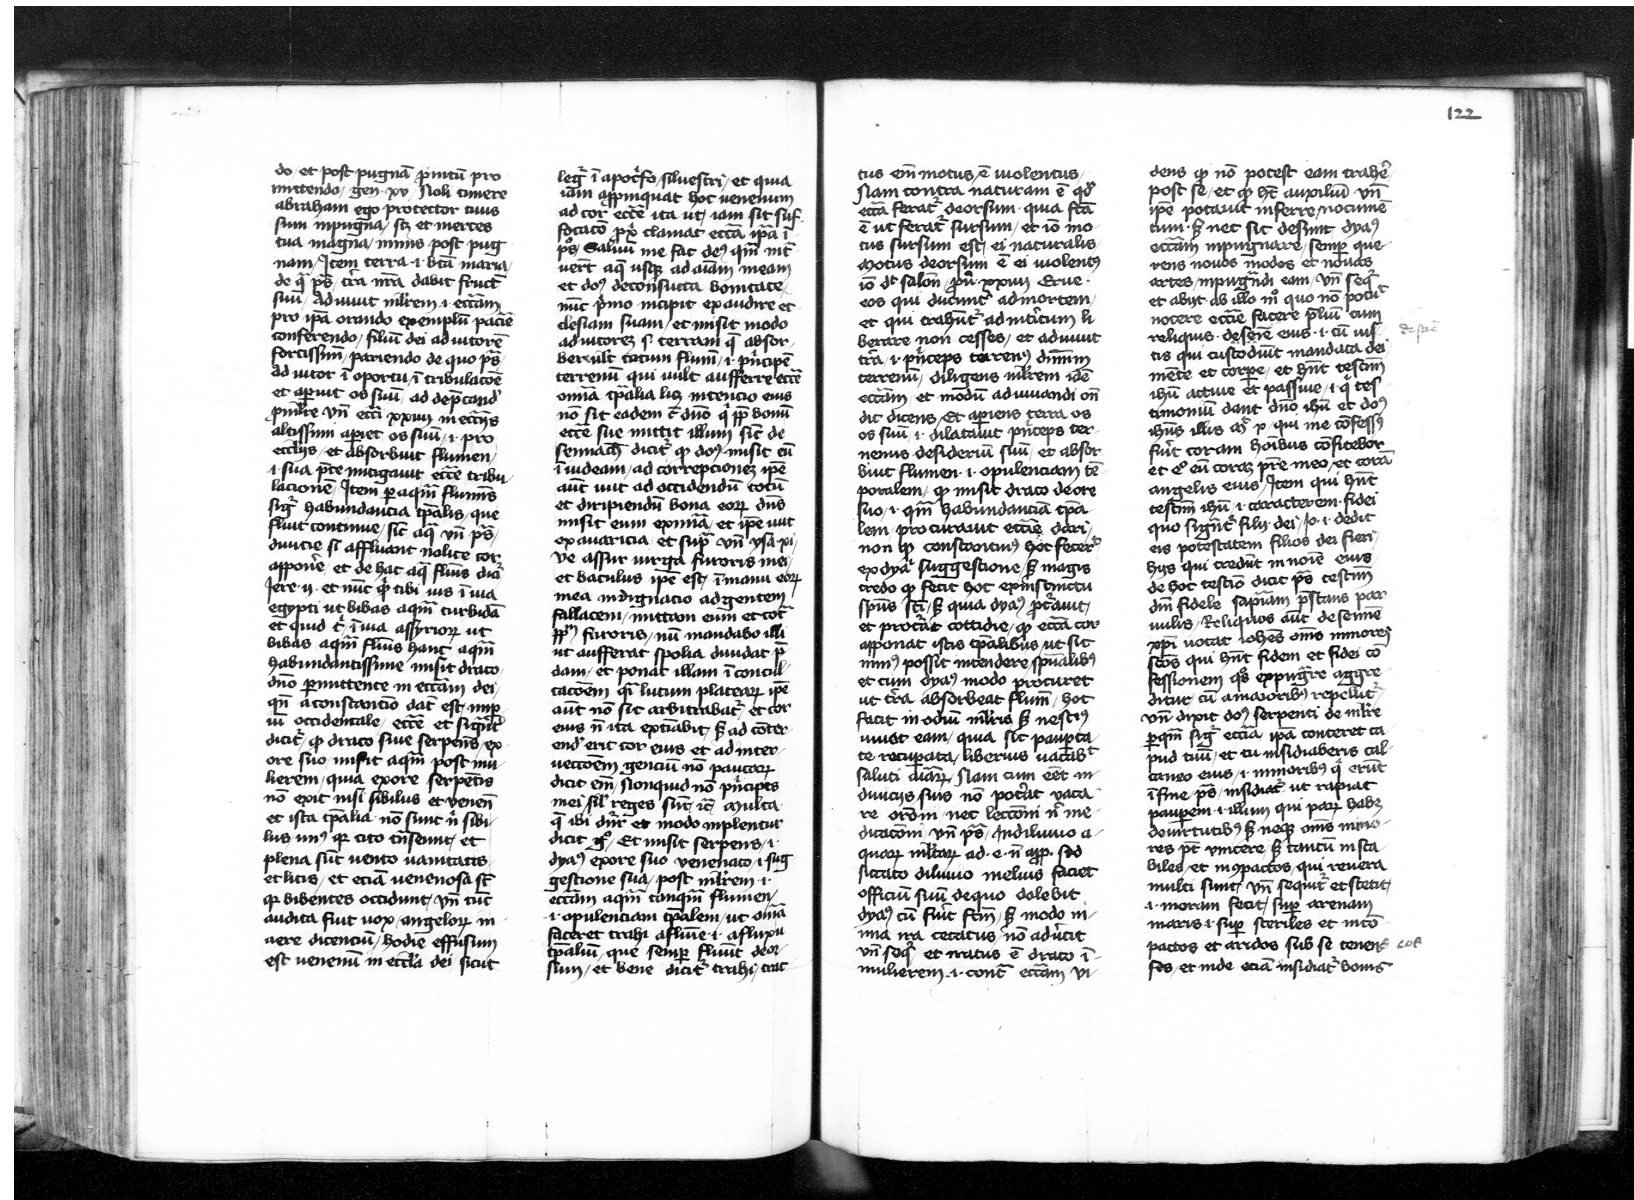 122
do et post pugnā p̄miū pro
mittendo / gen̄ xv / Noli timere
abraham ego protector tuus
sum in pugna / scz et merces
tua magna / nimis post pug
nam / Itēm terra ·i· btā maria /
de q̄ ps̄ / tr̄a nr̄a dabit fruct
suū / Adiuuit ml̄rem ·i· eccām /
pro ip̄a orando exemplū paciē
conferendo / filiū dei adiutorē
fortissim̄ / pariendo de quo ps̄
adiutor ī oportu / ī tribulacōe
et aperuit os suū / ad dep̄cand
p̄ ml̄re vn̄ ecci xxiiii in eccījs
altissimi aperiet os suū ·i· pro
ecclīs / et absorbuit flumen /
·i· sua p̄re mitigauit eccē tribu
lacionē / Item per aquā flumīs
sigr̄ habundancia tp̄alis / que
fluit continue / sic̄ aq̄ vn̄ ps̄ /
diuicie si affluant nolite cor
apponē / et de hac aq̄ flumīs dic̄
Jere ·ij· et nūc qd̄ tibi uis ī uia
egypti ut bibas aquā turbidā
et quid t̄ ī uia assyriorꝝ ut
bibas aquā flumīs hanc aquā
habundantissime misit draco
dn̄o permittente in eccām dei /
qn̄ a constantino dat̄ est / imp
iū occidentale / eccē et significat̄
dicit̄ / ꝙ draco siue serpens / ex
ore suo / misit aquā post mu
lierem / quia ex ore serpentis
nō exit nisi sibilus et venen̄
et ista tp̄alia nō sunt n̄ sibi
lus un̄9 qꝛ cito tn̄seunt / et
plena sūt vento uanitatis
et litis / et eciā venenosa st̄
qꝛ bibentes occidunt / vn̄ tūc
audita fuit uox / angelorꝝ in
aere dicenciū / hodie effusum
est venenū in ecclīa dei sicut
legr̄ ī apocrifo / siluestri / et quia
iam appropinquat hoc venenum
ad cor eccē ita ut / iam sit suf
focato / ꝓpt̄ clamat eccā ip̄a ī
ps̄o / Saluū me fac de9 qm̄ int̄
uer̄t aq̄ usqꝫ ad aīam meam
et do9 deconsueta bonitate
nūc p̄mo incipit exaudire ec
clesiam suam / et misit modo
adiutorez s· terram q̄ absor
beruit totum flumē / ·i· p̄ncipē
terrenū qui uult aufferre eccē
omīa tp̄alia licꝫ intencio eius
nō sit eadem c̄ dn̄o q̄ ꝓp̄ bonū
eccē sue mittit illum sic̄ de
sennach̄ dicit̄ ꝙ do9 misit eū
ī iudeam / ad correpcionez ip̄e
aūt iuit ad occidendū totū
et diripiendū bona eorꝝ dn̄s
misit eum ex ira / et ip̄e iuit
ex auaricia / et sup̄ vn̄ ysa xi /
ve assur uirga furoris mei /
et baculus ip̄e est / ī manu eorꝝ
mea indignacio ad gentem
fallacem / mittam eum et cont̄
pp̄lm furoris / nū mandabo illi
ut aufferat spolia diuidat p̄
dam / et ponat illam ī concul
cacōem qr̄ lutum platearꝝ ip̄e
aūt nō sic arbitrabat̄ et cor
eius n̄ ita existiabit / sꝫ ad cōter
endꝰ erit cor eius et ad inter
neccoem genciū nō paucarꝝ
dicit em̄ / Nonquid nō p̄ncipes
mei / sil̄ reges sūt / ic̄ / Multa
q̄ ibi dn̄r et modo implentur
dicit gͦ / Et misit serpens / ·i·
dya9 ex ore suo venenato / i sug
gestione sua / post ml̄rem ·i·
eccām aquā tanquā flumen /
·i· opulenciam tp̄alem / ut omīa
faceret trahi a flumē ·i· a fluxu
tp̄aliū / que semp̄ fluūt deor
sum / et bene dicit̄ trahi / trac
tus em̄ motus / ē uiolentus /
Nam contra naturam ē qd̄
eccā ferat̄ deorsum quia fcā
ē ut ferat̄ sursum / et iō mo
tus sursum est / ei naturalis
Motus deorsum ē ei uiolent9
iō d̄t salōn / ꝓu xxiiii Erue
eos qui ducunt̄ ad mortem /
et qui trahūt̄ ad interitum li
berare non cesses / et adiuuit
tr̄a ·i· p̄nceps terren9 dm̄m
terrenū / diligens ml̄rem idē
eccām / et modū adiuuandi on̄
dit dicens / Et aperiens terra os
os suū / ·i· dilatauit p̄nceps ter
renus desideriū suū / et absor
buit flumen ·i· opulenciam tē
poralem / ꝙ misit draco de ore
suo / ·i· qm̄ habundanciā tp̄a
lem / procurauit eccīe dari /
non ꝙ constantin9 hoc fecer̄
ex dya suggestione / sꝫ magis
credo ꝙ fecit hoc ex instinctu
sp̄us sc̄i / sꝫ quia dya9 ꝓcauit /
et procūt cottidie / ꝙ eccā cor
apponat istis tp̄alibus ut sic
min9 possit intendere sp̄ualib9
et cum dya9 modo procuret
ut tr̄a absorbeat flumē / hoc
facit in odiū ml̄ris sꝫ nesci9
iuuat eam / quia sic paup̄ta
te recuperata / liberius uacab̄t
saluti aīarꝝ / Nam cum eēt in
diuicijs suis nō poterat uaca
re orōm nec leccōni n̄ me
ditacōni / vn̄ ps̄ / In diluuio a
quarꝝ ml̄tarꝝ ad ·e· n̄ app̄ · sed
siccato diluuio melius faciet
officiū suū de quo dolebit
dya9 cū fuit̄ fcm̄ / sꝫ modo ni
mia ira cecatus / nō aduertit
vn̄ seqr̄ et iratus ē draco ī
mulierem ·i· cont̄ eccām vi
dens ꝙ nō potest eam trahe
post se / et ꝙ hc̄ auxiliū vn̄
ip̄e potauit inferre / nocumē
tum / sꝫ nec sic desinit dya9
eccām inpugnare / semp̄ que
rens nouos modos et nouas
artes / inpugnādi eam / vn̄ seqr̄
et abijt ab illo m̄ quo nō potuit
nocere eccīe facere p̄liū cum
reliquis · de semīe eius ·i· cū ius
tis qui custodiūt mandata dei
mēte et corpe / et hn̄t testim̄
ihū active et passiue / ·i· q̄ tes
timoniū dant dn̄o ihū et do9
ihus illis mͭ x / qui me cōfess9
fuit̄ coram hoībus confitebor
et eͦ eū coraz p̄re meo / et corā
angelis eius / Item qui hn̄t
testim̄ ihū ·i· caracterem fidei
quo signant̄ filij dei / Jo ·i· dedit
eis potestatem filios dei fieri
hijs qui credūt in noīe eius
de hoc testiō dicit ps̄ testim̄
dm̄ fidele sapiam p̄stans par
uulis / Reliquos aūt de semīe
xp̄i uocat iohēs oīs minores
scōs qui hn̄t fidem et fidei cō
fessionem qͦs expugnare aggre
ditur / cū a maiorib9 repellit̄
vn̄ dixit do9 serpenti de ml̄re
per quā sigr̄ eccīa ip̄a conteret ca
pud tuū / et tu insidiaberis cal
caneo eius / ·i· minorib9 q̄ erūt
ī fine / ps̄ / insidiat̄ ut rapiat
pauperem ·i· illum qui parꝝ habꝫ
de uirtutib9 sꝫ neqꝫ om̄s mino
res pt̄ vincere / sꝫ tantū insta
biles / et in9pactos / qui reuera
multi sunt / vn̄ sequit̄ et stetit /
·i· moram fecit / sup̄ arenam
maris ·i· sup̄ steriles et incō
pactos et aridos sub se tenens
ses / et inde eciā insidiat̄ bonis